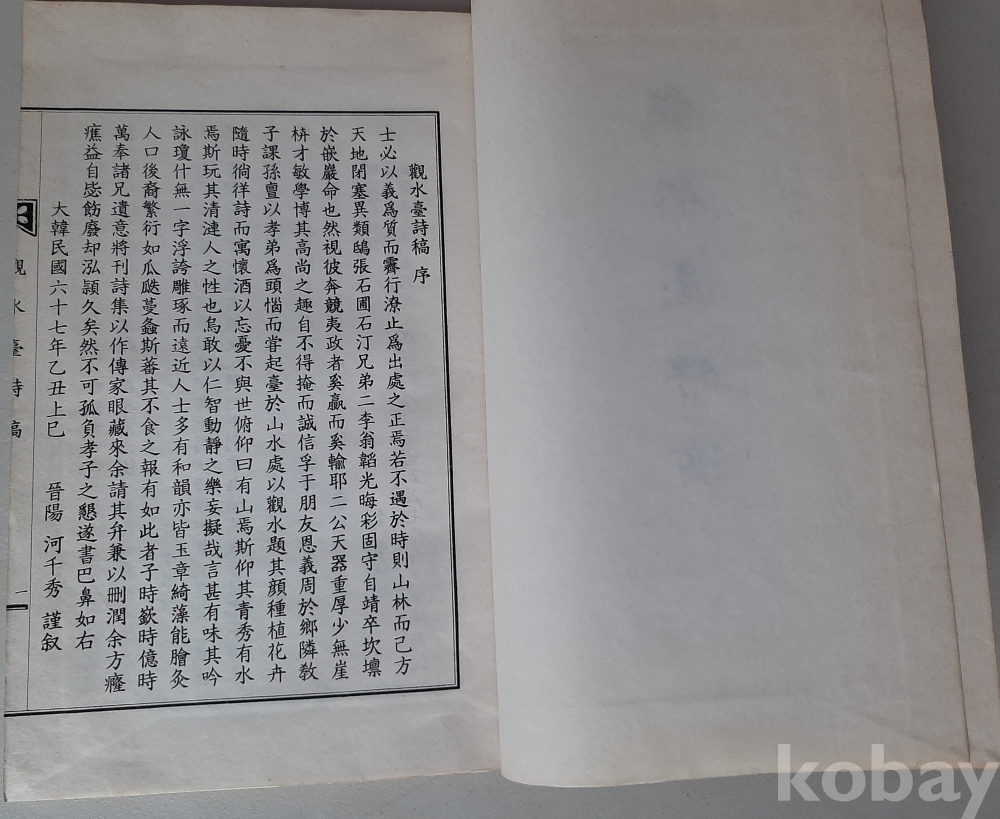 觀水臺詩稿 序
士必以義爲質而霽行潦止爲出處之正焉若不遇於時則山林而己方
天地閉塞異類鴟張石圃石汀兄弟二李翁韜光晦彩固守自靖卒坎壈
於嵌巖命也然視彼奔競夷政者奚贏而奚輸耶二公天器重厚少無崖
枿才敏學博其高尚之趣自不得掩而誠信孚于朋友恩義周於鄉隣敎
子課孫亶以孝弟爲頭惱而甞起臺於山水處以觀水題其顔種植花卉
隨時徜徉詩而寓懷酒以忘憂不與世俯仰曰有山焉斯仰其青秀有水
焉斯玩其清漣人之性也烏敢以仁智動靜之樂妄擬哉言甚有味其吟
詠瓊什無一字浮誇雕琢而遠近人士多有和韻亦皆玉章綺藻能膾灸
人口後裔繁衍如瓜瓞蔓螽斯蕃其不食之報有如此者子時嶔時億時
萬奉諸兄遺意將刊詩集以作傳家眼藏來余請其弁兼以刪潤余方癃
癄益自毖飭廢却泓穎久矣然不可孤負孝子之懇遂書巴鼻如右
大韓民國六十七年乙丑上巳 晉陽 河千秀 謹叙
觀水臺詩稿
一
kobay